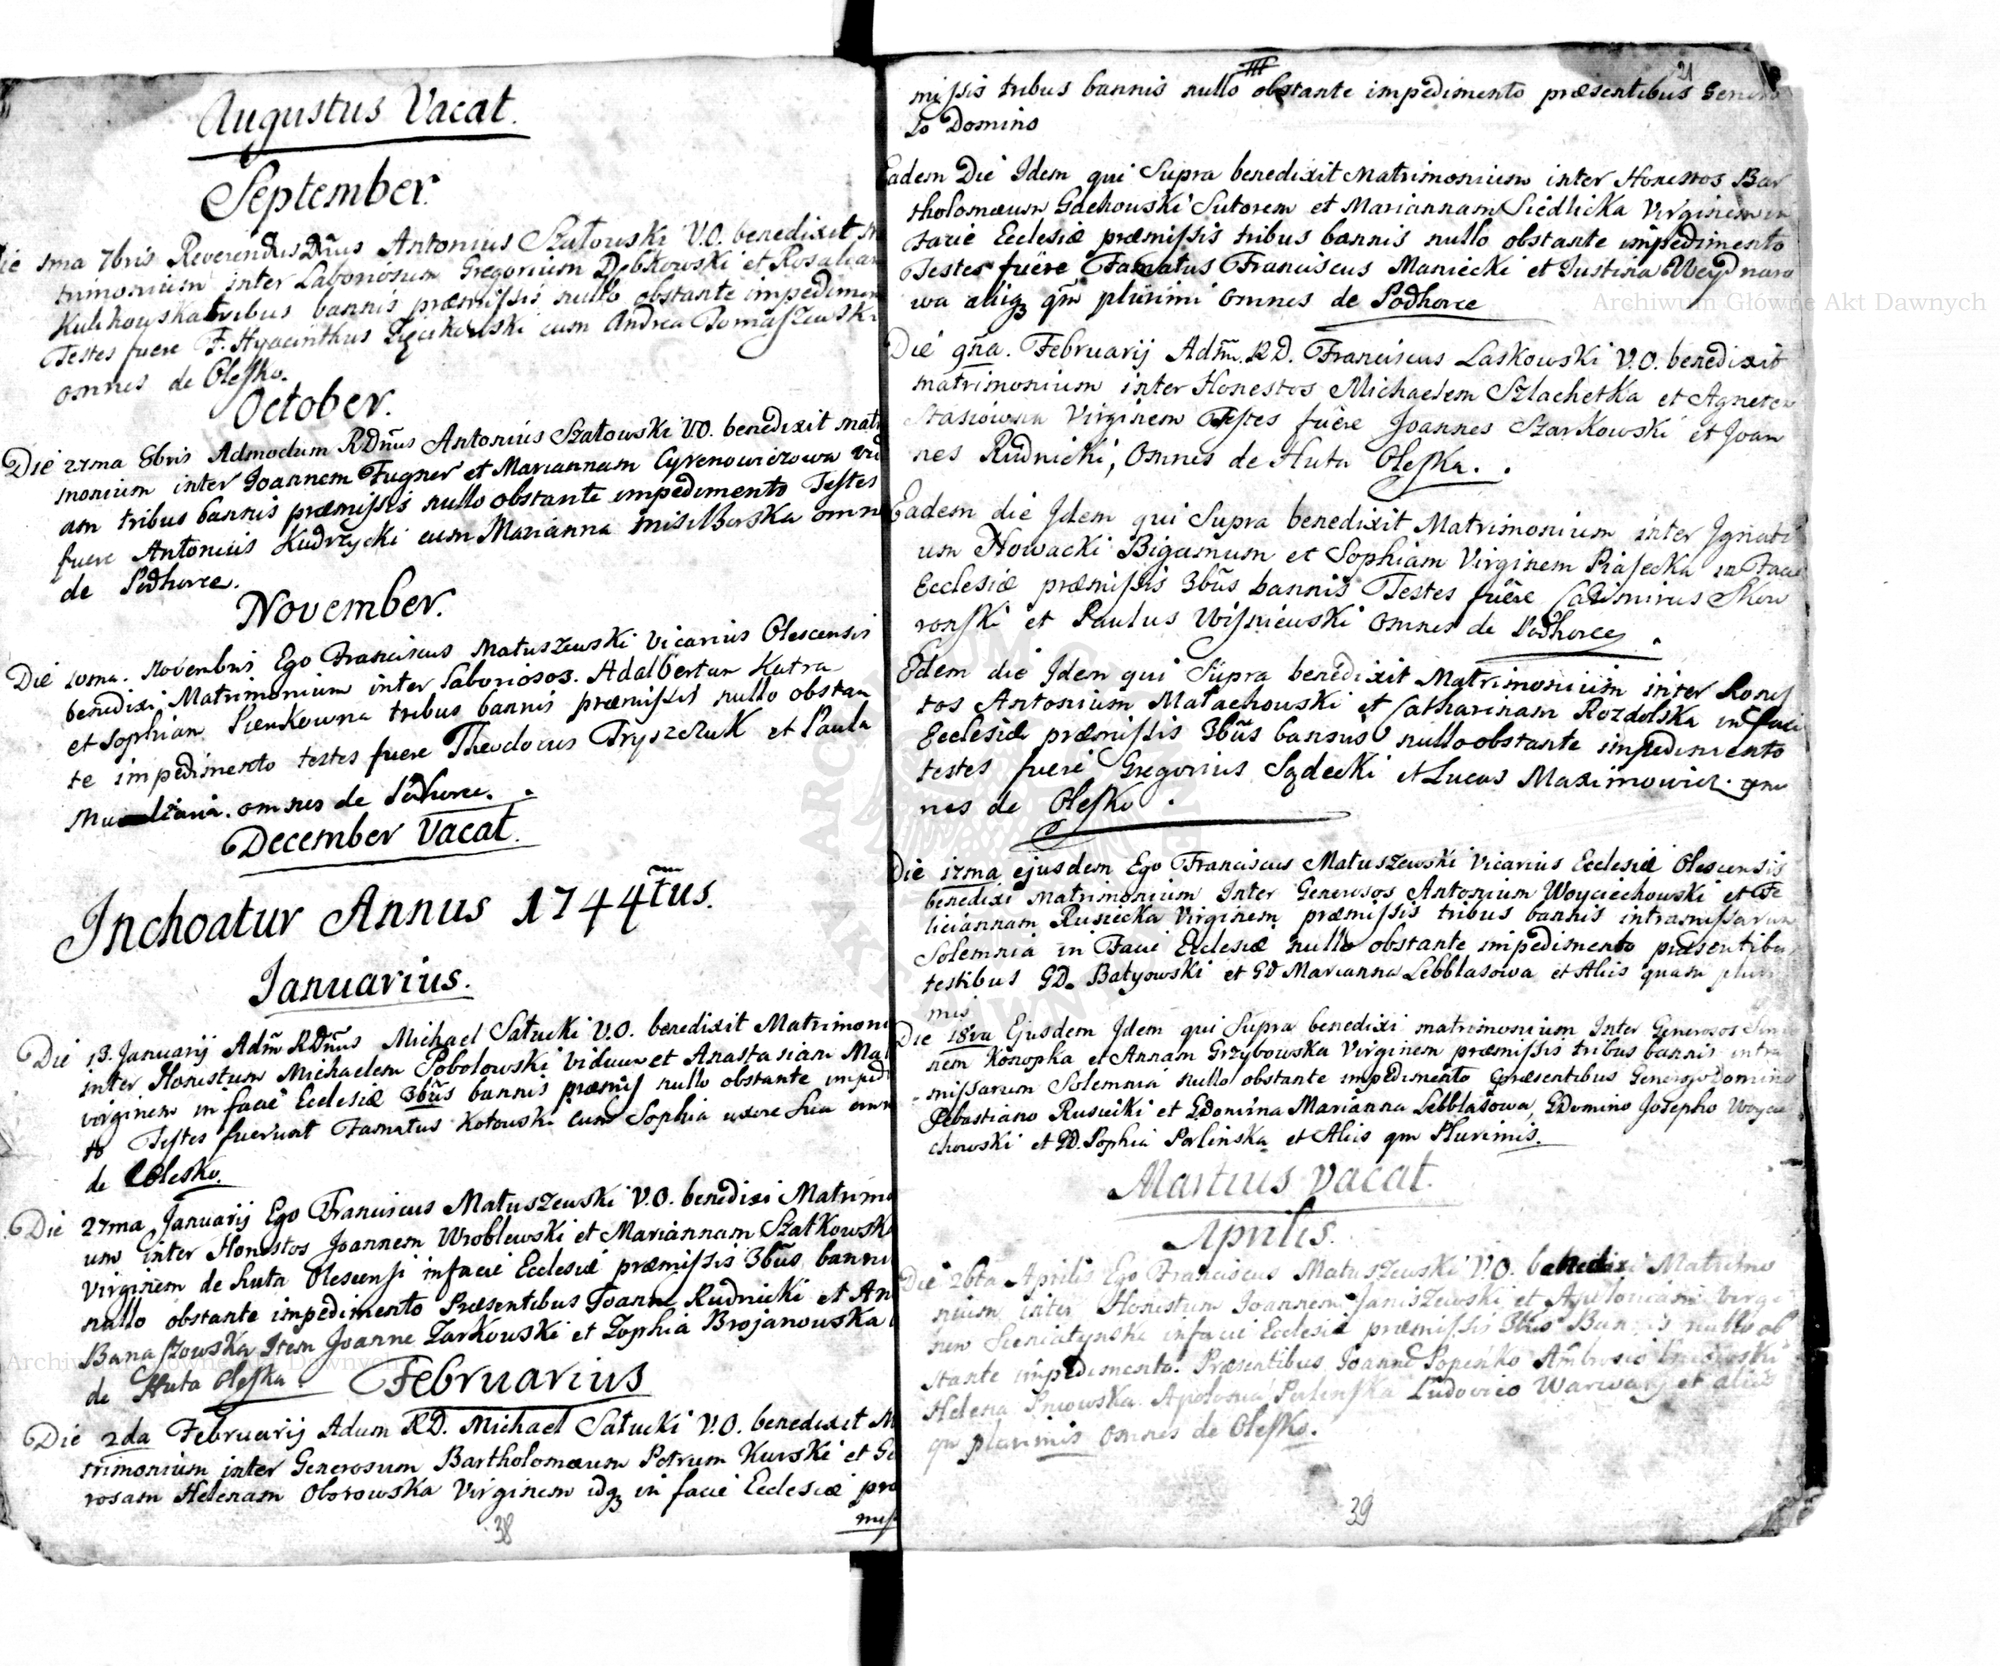 Augustus Vacat.
September.
Die 1ma 7bris Reverendus Dnus Antonius Szatowski V.O. benedixit
trimonium inter Laboriosum Gregorium Dębkowski et Rosaliam
Kulikowska tribus bannis præmissis nullo obstante impedimen
Testes fuere F. Hyacinthus cum Andrea Tomaszewski
omnes de Olesko.
October.
Die 27ma 8bris Admodum RDnus Antonius Szatowski VO. benedixit matri
monium inter Joannem Fugner et Mariannam Cyrenowiczowa vidu
am tribus bannis præmissis nullo obstante impedimento Testes
fuere Antonius Kudrzycki cum Marianna omn
de Podhorce.
November.
Die 10ma. Novembris Ego Franciscus Matuszewski Vicarius Olescensis
benedixi Matrimonium inter Laboriosos. Adalbertum Kutra
et Sophian Sienkowna tribus bannis præmissis nullo obstan
te impedimento testes fuere Theodorus Fryszczuk et Paula
omnes de Podhorce.
December Vacat.
Inchoatur Annus 1744tus.
Januarius.
Die 13. Januarij Adm RDnus Michael Satucki V.O. benedixit Matrimoni
inter Honestum Michaelem Pobolowski viduum et Anastasiam Mal
virginem in facie Ecclesiæ 3bus bannis præmis nullo obstante impedi
to Testes fuerunt Famatus Kotowski cum Sophia uxore sua omn
de Olesko.
Die 27ma Januarij Ego Franciscus Matuszewski V.O. benedixi Matrimo
um inter Honestos Joannem Wroblewski et Mariannam Szatkowska
Virginem de Huta Olescensi in facie Ecclesiæ præmissis 3bus banni
nullo obstante impedimento Præsentibus Joanne Rudnicki et An
Banaszowska Item Joanne Zarkowski et Zophia Brojanowska
de Huta Oleska.
Februarius
Die 2da Februarij Adum RD. Michael Satucki V.O. benedixit M
trimonium inter Generosum Bartholomæum Petrum Kurski et Ge
rosam Helenam Oborowska Virginem idq in facie Ecclesiæ præ
mis
38
21
III
missis tribus bannis nullo obstante impedimento præsentibus Genero
so Domino
Eadem Die Idem qui Supra benedixit Matrimonium inter Honestos Bar
tholomæum Gachouski Sutorem et Mariannam Siedlicka Virginem in
facie Ecclesiæ præmissis tribus bannis nullo obstante impedimento
Testes fuere Famatus Franciscus Maniecki et Justina Weydnaro
wa aliiq qm plurimi omnes de Podhorce
Die 9na. Februarij Adm. RD. Franciscus Laskowski V.O. benedixit
matrimonium inter Honestos Michaelem Szlachetka et Agnetem
Stasiowna Virginem Testes fuere Joannes Szarkowski et Joan
nes Rudnicki, Omnes de Huta Oleska.
Eadem die Idem qui Supra benedixit Matrimonium inter Ignati
um Nowacki Bigamum et Sophiam Virginem Piasecka in facie
Ecclesiæ præmissis 3bus bannis Testes fuere Casimirus Skow
ronski et Paulus Wisniewski omnes de Podhorce.
Edem die Idem qui Supra benedixit Matrimonium inter Hones
tos Antonium Matachowski et Catharinam Rozdolska in faci
Ecclesiæ præmissis 3bus bannis nullo obstante impedimento
testes fuere Gregorius Sądecki et Lucas Maximowicz. om
nes de Olesko.
Die 17ma ejusdem Ego Franciscus Matuszewski Vicarius Ecclesiæ Olescensis
benedixi Matrimonium Inter Generosos Antonium Woyciechowski et Fe
liciannam Rusiecka Virginem præmissis tribus bannis intra missarum
Solemnia in Facie Ecclesiæ nullo obstante impedimento præsentibus
testibus GD. Batyowski et GD Marianna Lebblasowa et Aliis quam pluri
mis
Die 18va Ejusdem Idem qui Supra benedixi matrimonium Inter Generosos
nem Konopka et Annam Grzybowska Virginem præmissis tribus bannis intra
missarum Solemnia nullo obstante impedimento præsentibus Generoso Domino
Sebastiano Rusiecki et GDomina Marianna Lebblasowa, GDomino Josepho Woycie
chowski et GD. Sophia Perlinska et Aliis qm Plurimis.
Martius Vacat.
Aprilis.
Die 26ta Aprilis Ego Franciscus Matuszewski V.O. benedixi Matrimo
nium inter Honestum Joannem Janiszewski et Apoloniam Virgi
nem Seniatynska in facie Ecclesiæ præmissis 3bus Bannis nullo ob
stante impedimento. Præsentibus Joanne Popeńko Ambrosio
Helena Apolonia Ludovico et aliis
qm plurimis omnes de Olesko.
39
Archiwum Główne Akt Dawnych
Archiwum Główne Akt Dawnych